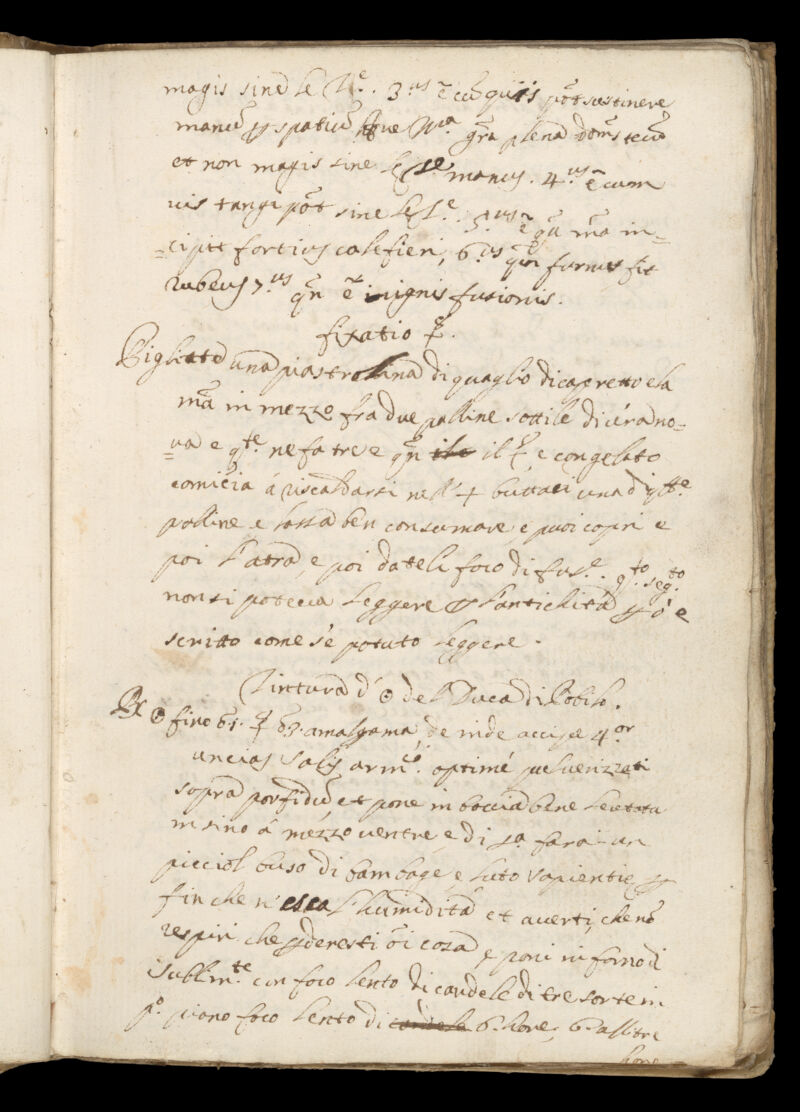 magis sine le 3.us ẽ cũ quis põt sustinere
manũ spatiũ plena
et non magis sine manus. 4.us ẽ cum
vis tangi põt sine 5.us ẽ qñ mã in=
=cipit fortius calefieri, 6.us qñ furnus fit
rubeus 7.us qñ ẽ ignis fusionis.
fixatio ☿.
Pigliate una piastrolina di quaglio di capretto e la
mã in mezzo fra due palline sottile di cera no=
=va e q.te ne fa tre e qñ il ☿ e congelato
comĩcia á riscaldarsi nell una di
palline e lassa ben consumare, e puoi copri e
poi l'atra, e poi dateli foco di fus.e q.to seg.to
non si poteva leggere l'antichitá pó e
scritto come s'e potuto leggere.
Tintura d'☉ del Duca di
℞ ☉ fino ☿ amalgama, de inde accipe 4.or
uncias salis arm.co optimé pulverizzati
sopra porfidũ et pone in boccia bene lutata
insino á mezzo ventre e di s.a farai un
picciol buso di bambage e luto sapientie
fin che n'esca l'humiditá et averti, che nõ
respiri che perderesti õi cosa e poni in forno di
Sublim.te con foco lento di candele di tre sorte in
p.o piano foco lento di 6. hore, 6. all tre
hore